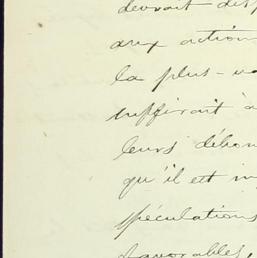 devrait disp
aux action
la plus-va
suffirait à
leurs débou
qu'il est im
spéculations
favorables,